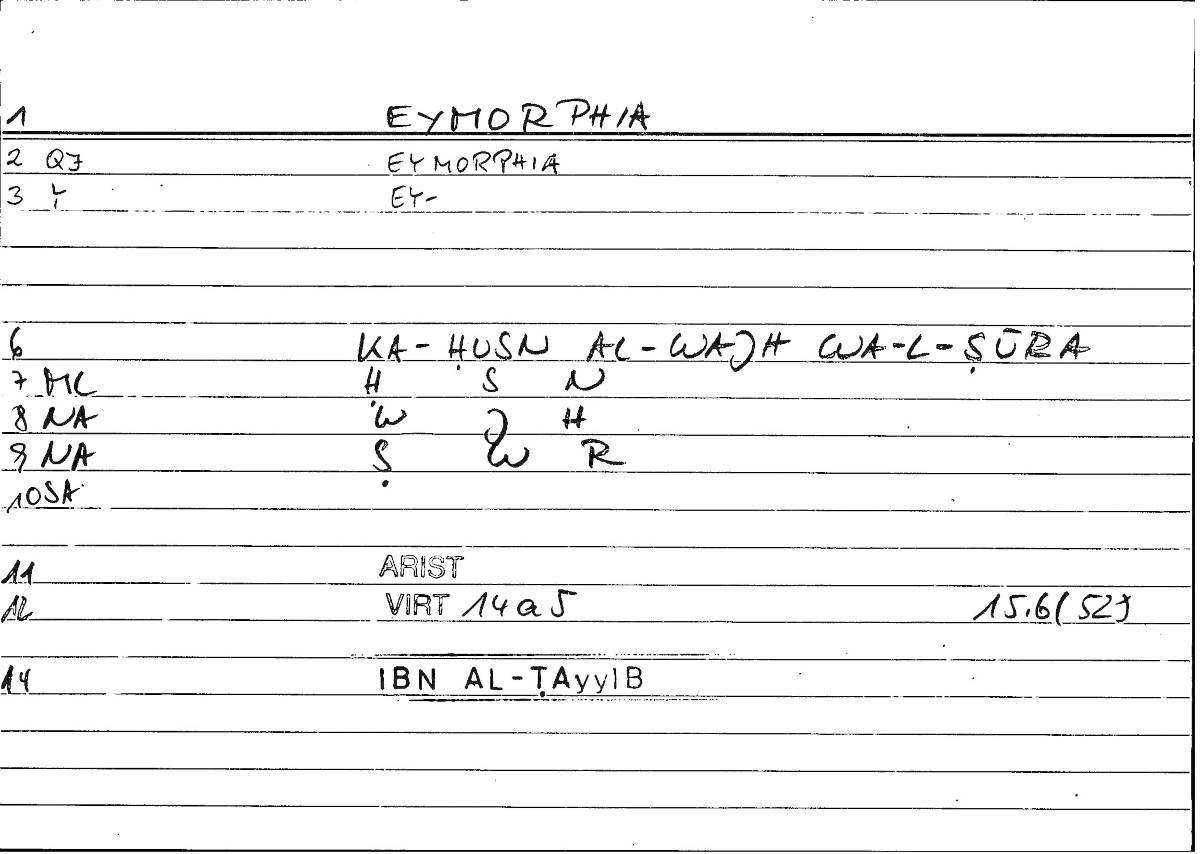 1 EYMORPHIA
2 QJ EYMORPHIA
3 Y EY-
6 KA-ḤUSN AL-WAJH WA-L-ṢŪRA
7 ML Ḥ S N
8 NA W J H
9 NA Ṣ W R
10 SA
11 ARIST
12 VIRT 14a5 15.6(52)
14 IBN AL-ṬAyyIB